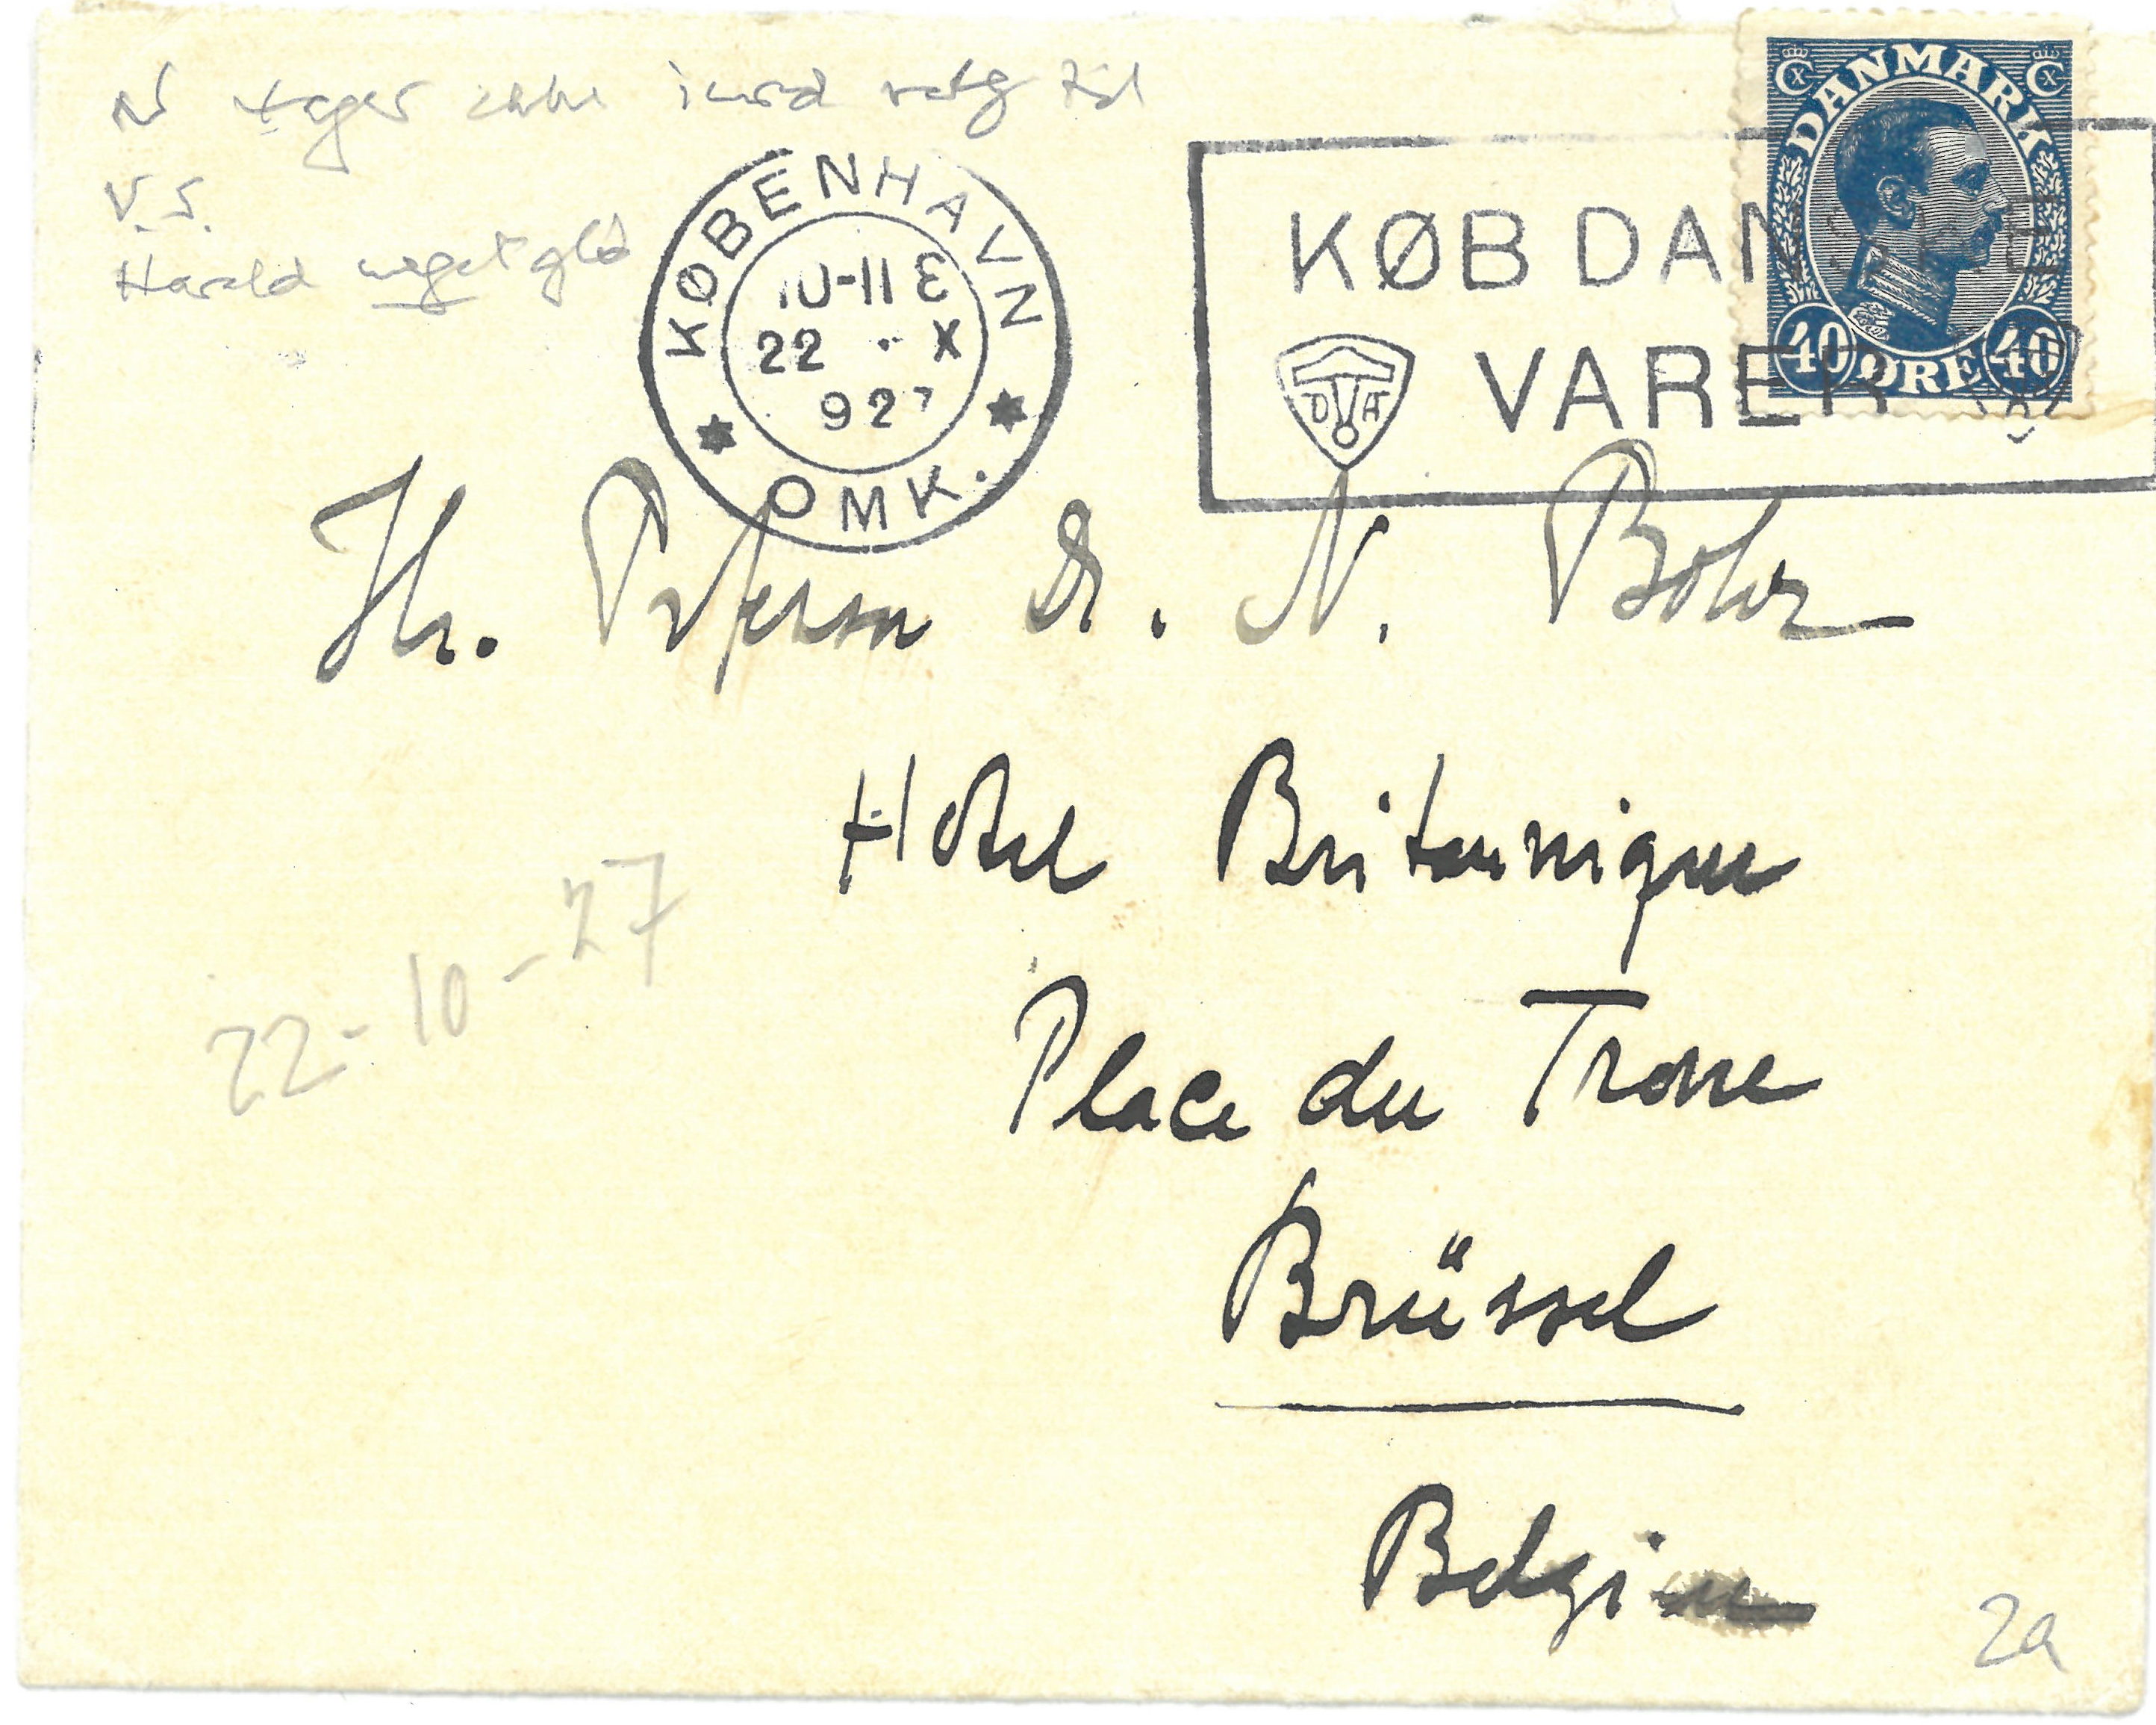 tager
V.S.
Harald meget
KØBENHAVN
10-11 E
22 X
927
OMK.
KØB DANSKE
VARER
DVA
DANMARK
40 ØRE 40
Hr. Professor Dr. N. Bohr
Hotel Britannique
Place du Trone
Brüssel
Belgien
22-10-27
2a